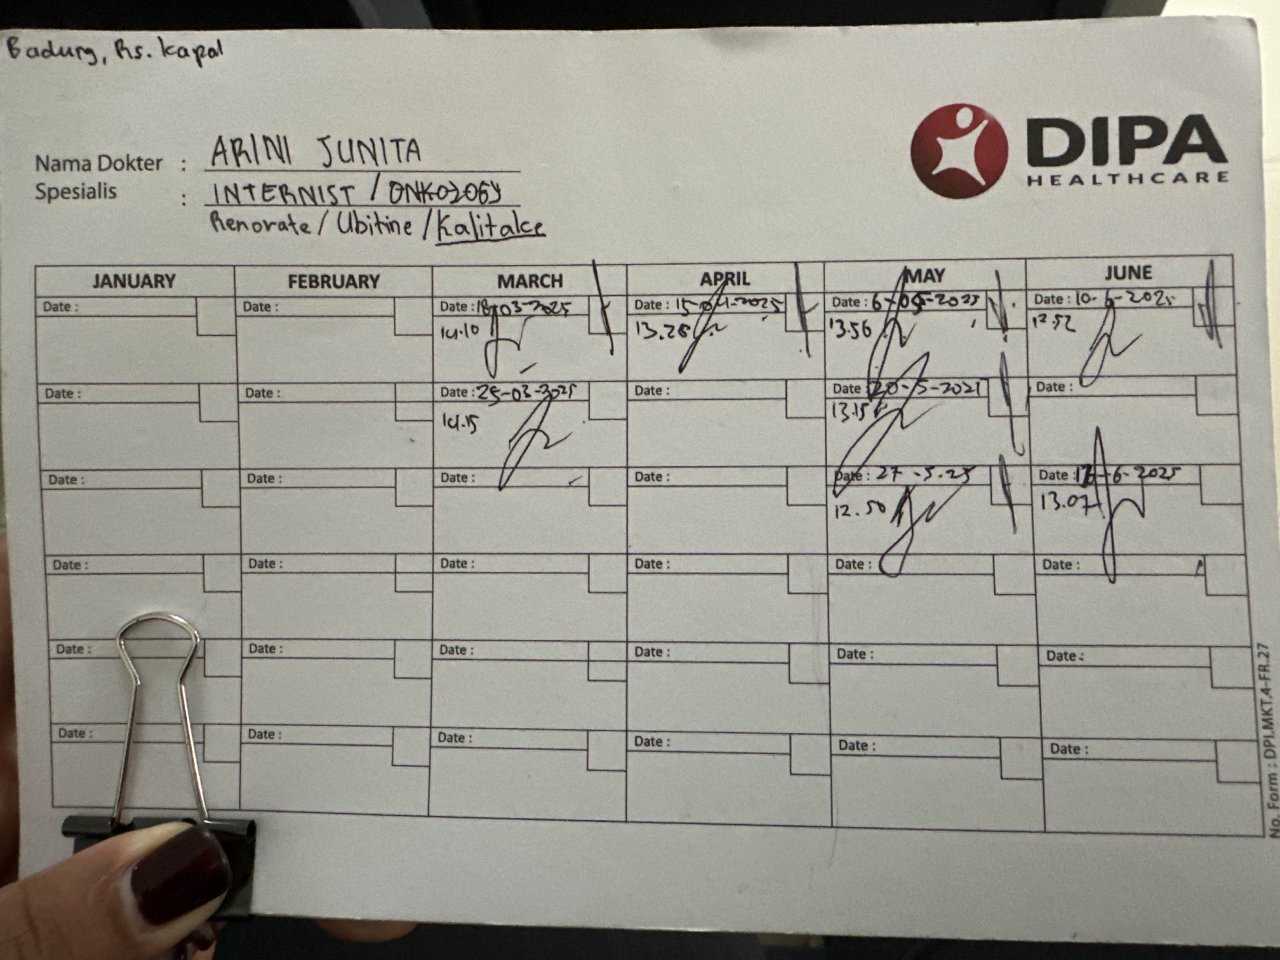 Badung, Rs. Kapal
DIPA
HEALTHCARE
Nama Dokter : ARINI JUNITA
Spesialis : INTERNIST / ONKOLOGY
Renorate / Ubitine / Kalitake
JANUARY FEBRUARY MARCH APRIL MAY JUNE
Date : Date : Date : 18-03-2025 Date : 15-04-2025 Date : 6-05-2025 Date : 10-6-2025
14.10 13.28 13.56 12.52
Date : Date : Date : 25-03-2025 Date : Date : 20-5-2025 Date :
14.15 13.15
Date : Date : Date : Date : Date : 27-5-25 Date : -6-2025
12.50 13.07
Date : Date : Date : Date : Date : Date :
Date : Date : Date : Date : Date : Date :
Date : Date : Date : Date : Date : Date :
No. Form : DPI.MKT.4-FR.27